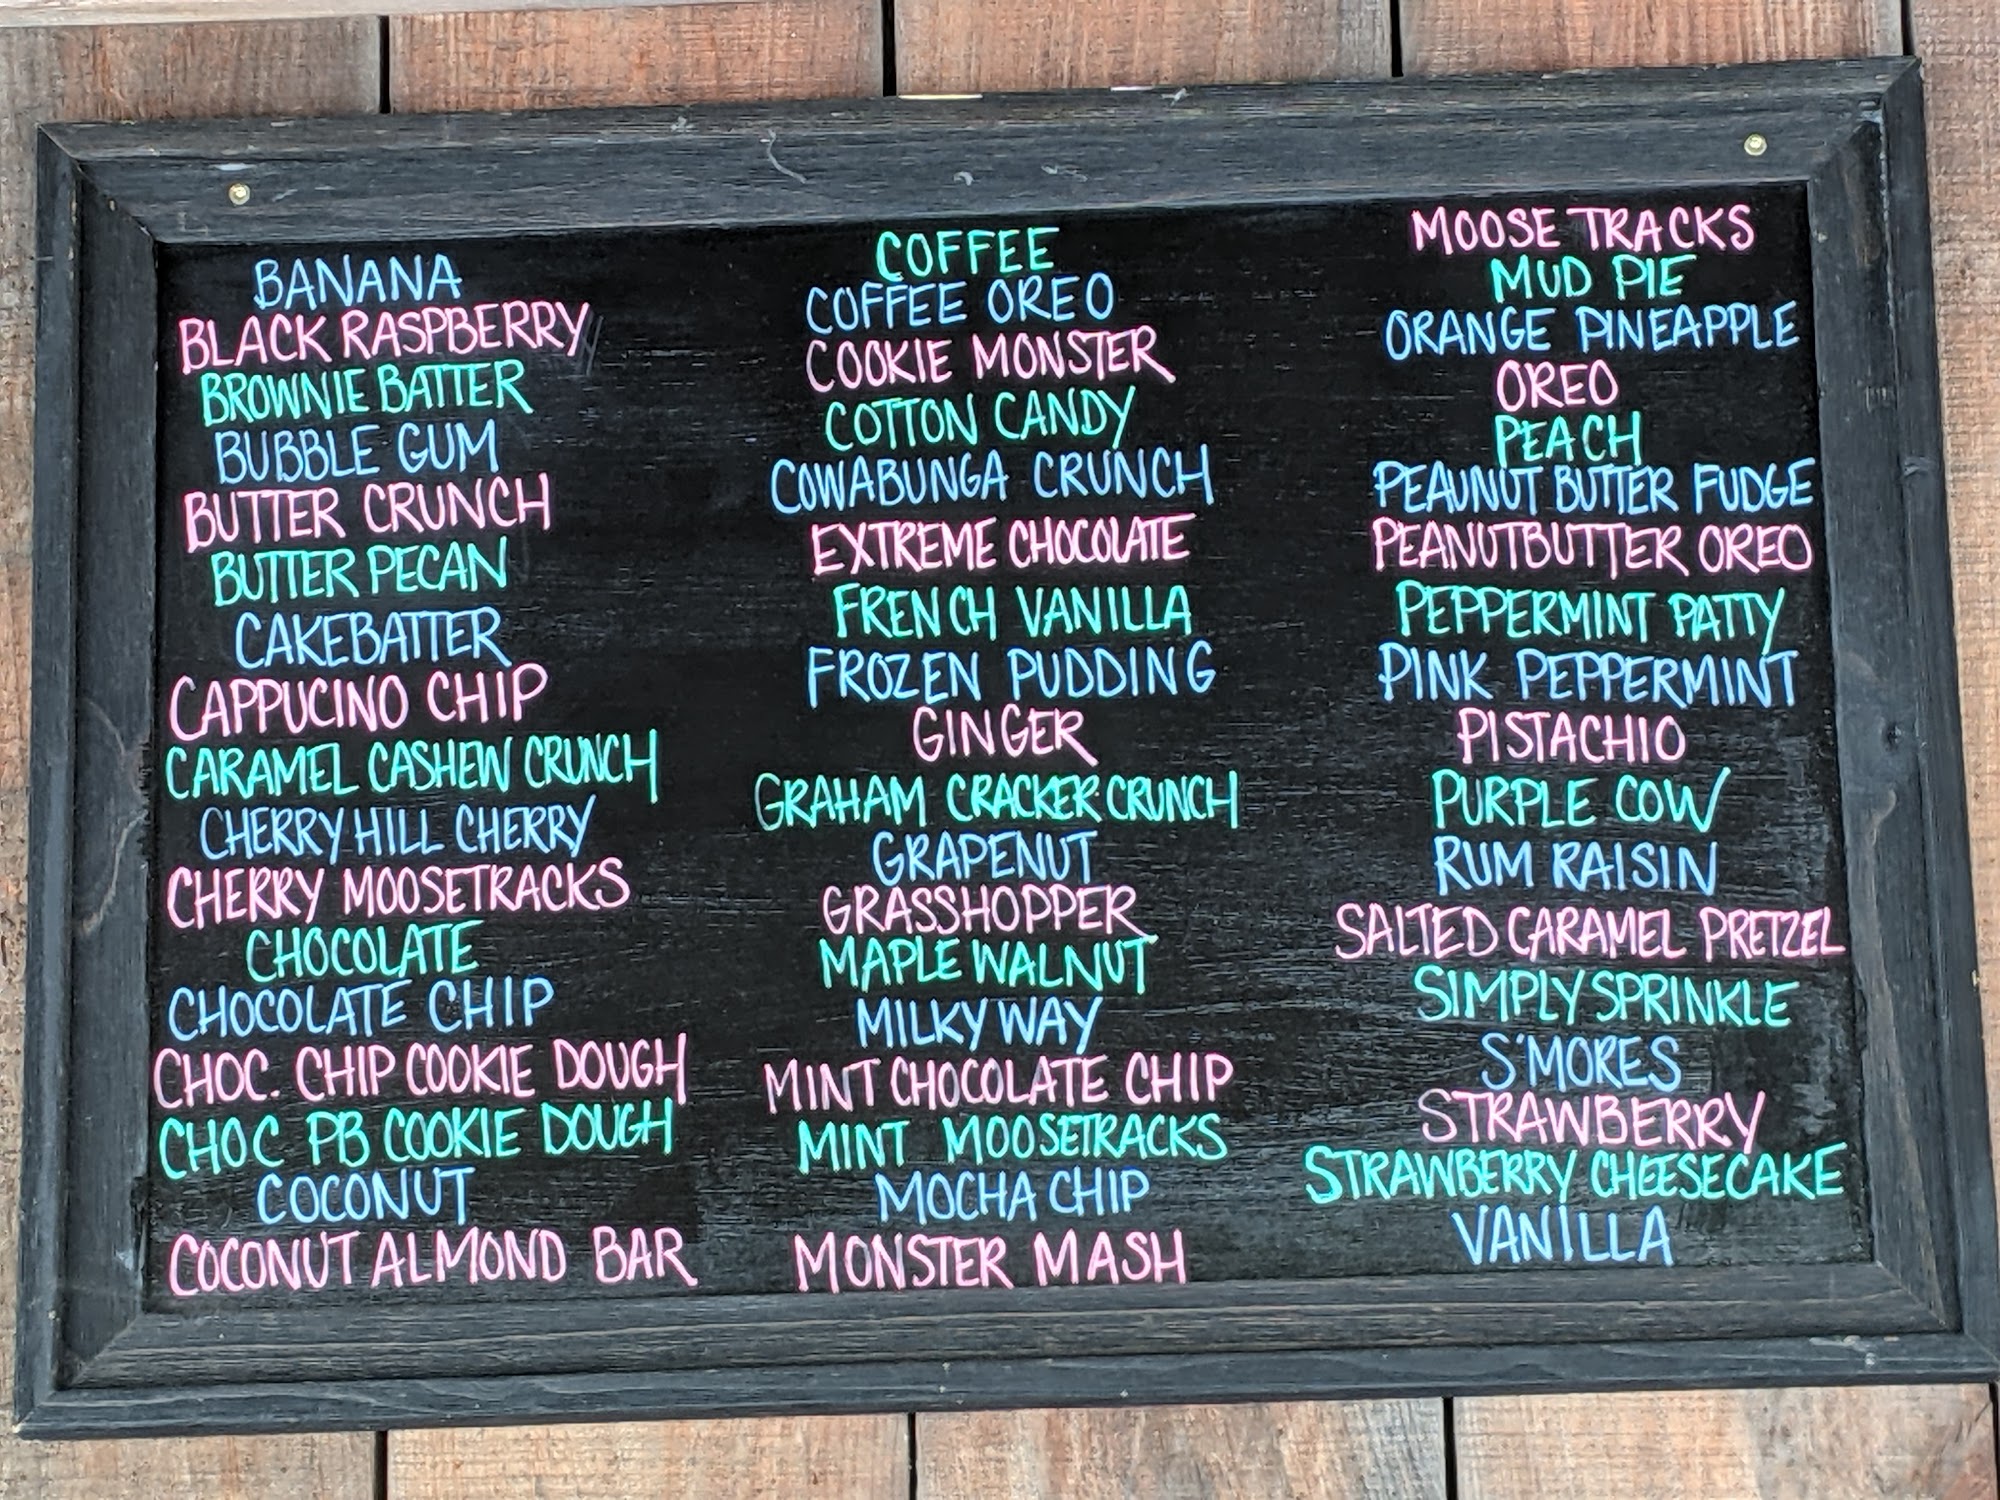 BANANA
BLACK RASPBERRY
BROWNIE BATTER
BUBBLE GUM
BUTTER CRUNCH
BUTTER PECAN
CAKEBATTER
CAPPUCINO CHIP
CARAMEL CASHEW CRUNCH
CHERRY HILL CHERRY
CHERRY MOOSETRACKS
CHOCOLATE
CHOCOLATE CHIP
CHOC. CHIP COOKIE DOUGH
CHOC PB COOKIE DOUGH
COCONUT
COCONUT ALMOND BAR
COFFEE
COFFEE OREO
COOKIE MONSTER
COTTON CANDY
COWABUNGA CRUNCH
EXTREME CHOCOLATE
FRENCH VANILLA
FROZEN PUDDING
GINGER
GRAHAM CRACKER CRUNCH
GRAPENUT
GRASSHOPPER
MAPLE WALNUT
MILKY WAY
MINT CHOCOLATE CHIP
MINT MOOSETRACKS
MOCHA CHIP
MONSTER MASH
MOOSE TRACKS
MUD PIE
ORANGE PINEAPPLE
OREO
PEACH
PEAUNUT BUTTER FUDGE
PEANUTBUTTER OREO
PEPPERMINT PATTY
PINK PEPPERMINT
PISTACHIO
PURPLE COW
RUM RAISIN
SALTED CARAMEL PRETZEL
SIMPLY SPRINKLE
S'MORES
STRAWBERRY
STRAWBERRY CHEESECAKE
VANILLA